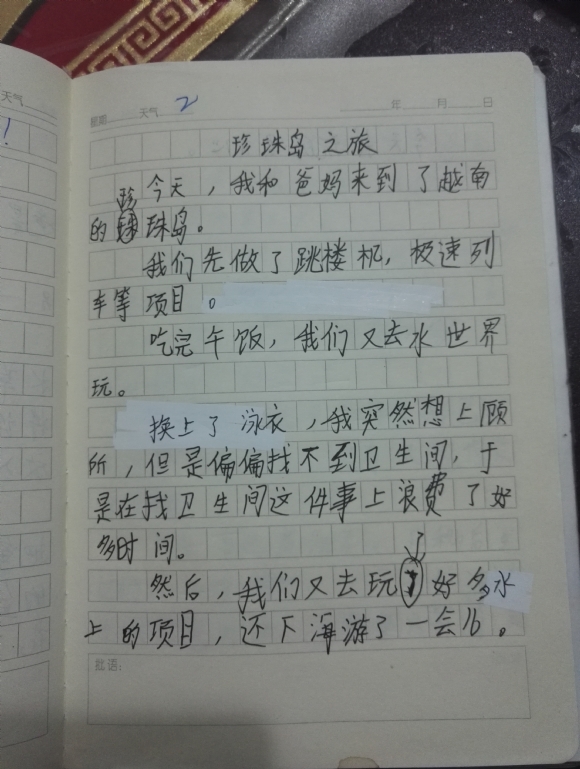 天气
天气 2 年 月 日
珍珠岛之旅
今天，我和爸妈来到了越南
的珍珠岛。
我们先做了跳楼机，极速列
车等项目。
吃完午饭，我们又去水世界
玩。
换上了泳衣，我突然想上顾
所，但是偏偏找不到卫生间，于
是在找卫生间这件事上浪费了好
多时间。
然后，我们又去玩了好多水
上的项目，还下海游了一会儿。
批语：